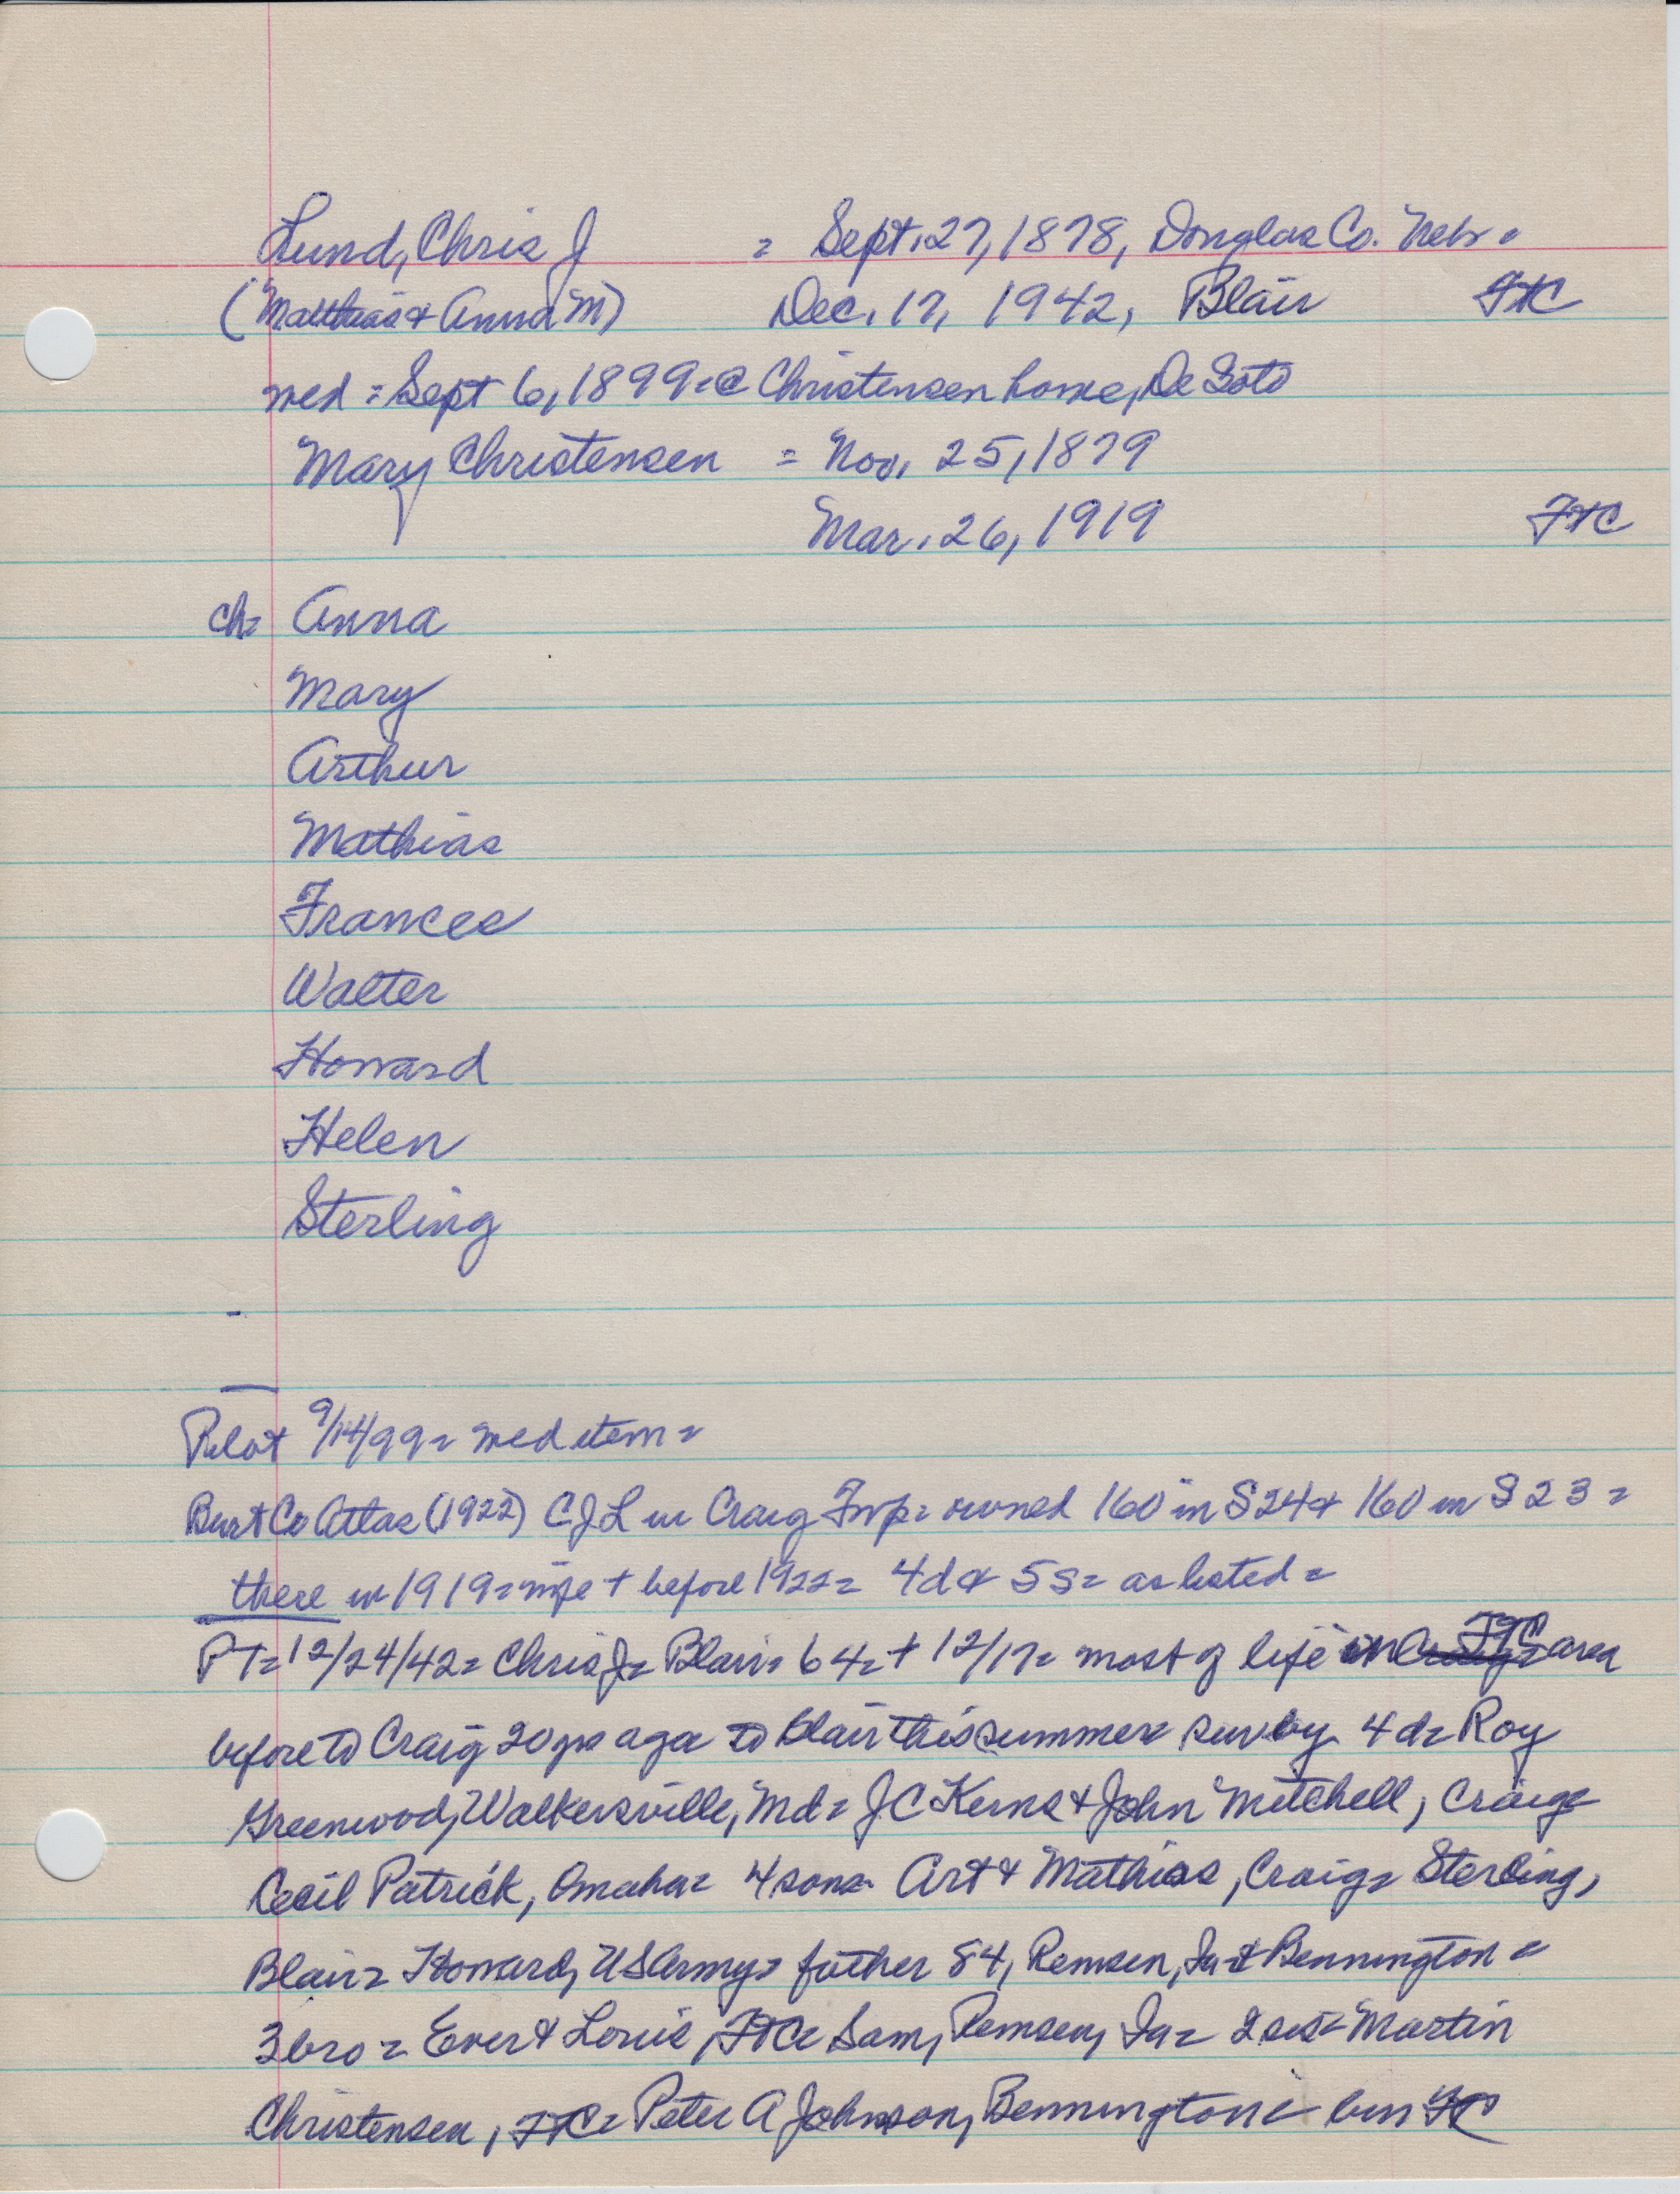 Lund, Chris J = Sept. 27, 1878, Douglas Co. Nebr =
(Matthias & Anna M) Dec. 17, 1942, Blair FtC
med = Sept 6, 1899 = @ Christensen home, De Soto
Mary Christensen = Nov. 25, 1879
Mar. 26, 1919 FtC
ch = Anna
Mary
Arthur
Mathias
Frances
Walter
Howard
Helen
Sterling
-
Pilot 9/14/99 = med item =
Burt Co Atlas (1922) CJL in Craig Twp = owned 160 in S24 & 160 in S23 =
there in 1919 = wife + before 1922 = 4d & 5s = as listed =
PT = 12/24/42 = Chris J = Blair = 64 = + 12/17 = most of life in FtC area
before to Craig 20 yrs ago = to Blair this summer = surv by 4d = Roy
Greenwood, Walkersville, Md = J C Kerns & John Mitchell, Craig =
Cecil Patrick, Omaha = 4 sons = Art & Mathias, Craig = Sterling,
Blair = Howard, US Army = father 84, Remsen, Ia & Bennington =
3 bro = Ever & Louis, FtC = Sam, Remsen, Ia = 2 sis = Martin
Christensen, FtC = Peter A Johnson, Bennington = bur FtC